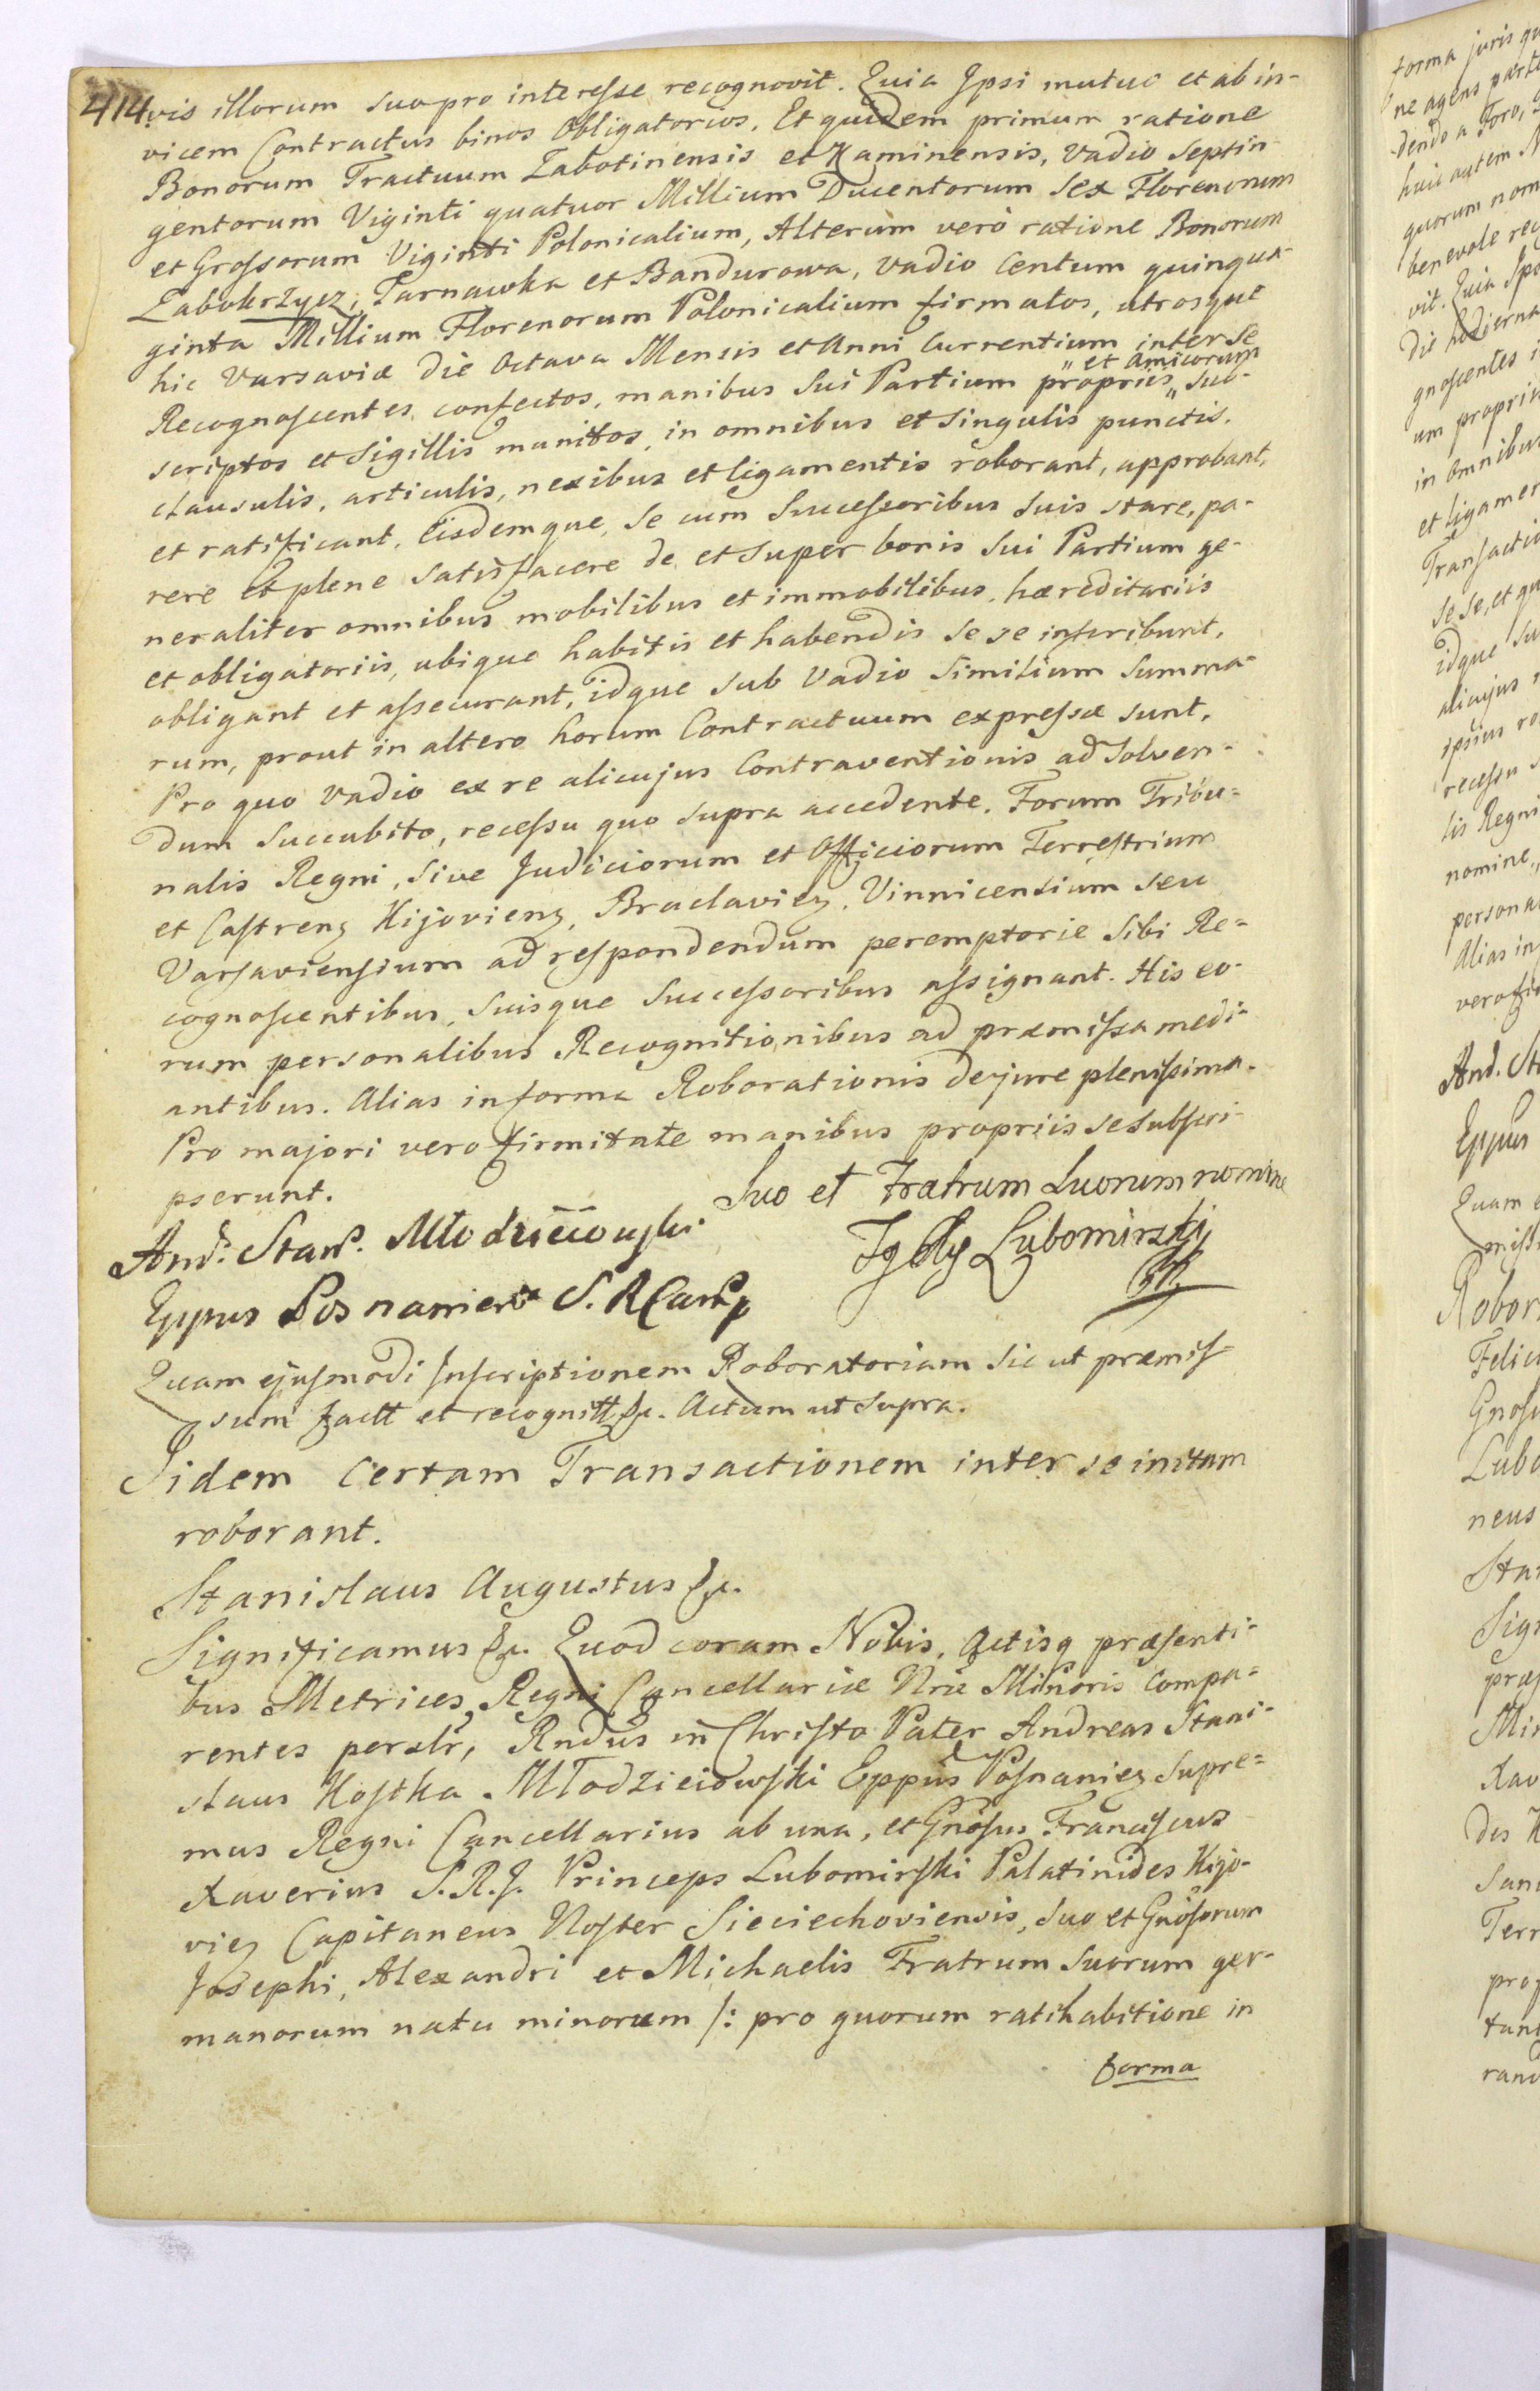 414
vis illorum suo pro interesse recognovit. Quia Ipsi mutuo et ab in-
vicem Contractus binos Obligatorios. Et quidem primum ratione
Bonorum Tractuum Zabotinensis et Kaminensis, vadio Septin-
gentorum Viginti quatuor Millium Ducentorum Sex Florenorum
et Grossorum Viginti Polonicalium, Alterum verò ratione Bonorum
Zabokrzycz, Tarnawka et Bandurowa, vadio Centum quinqua-
ginta Millium Florenorum Polonicalium firmatos, utrosque
hic Varsaviæ die Octava Mensis et Anni Currentium inter se
Recognoscentes confectos, manibus Sui Partium propriis "et Amicorum" sub-
scriptos et Sigillis munitos, in omnibus et singulis punctis,
clausulis, articulis, nexibus et ligamentis roborant, approbant,
et ratificant, Eisdemque, Se cum Successoribus suis stare, pa-
rere et plene satisfacere de et super bonis Sui Partium ge-
neraliter omnibus mobilibus et immobilibus, hæreditariis
et obligatoriis, ubique habitis et habendis se se inscribunt,
obligant et assecurant, idque sub vadio Similium Summa-
rum, prout in altero horum Contractuum expressæ sunt,
Pro quo vadio ex re alicujus Contraventionis ad Solven-
dum succubito, recessu quo supra accedente, Forum Tribu-
nalis Regni, sive Judiciorum et Officiorum Terrestrium
et Castrens Kijoviens, Braclavien, Vinnicensium seu
Varsaviensium ad respondendum peremptorie sibi Re-
cognoscentibus, suisque Successoribus assignant. His eo-
rum personalibus Recognitionibus ad præmissa medi-
antibus. Alias in forma Roborationis de jure plenissima.
Pro majori vero firmitate manibus propriis se subscri-
pserunt.
Suo et Fratrum Suorum nomine
And. Stan. Młodzieiowski.
Lubomirski
Eppus Posnanien
Quam ejusmodi Inscriptionem Roboratoriam sic ut præmis-
sum factt et recognitt &c. Actum ut supra.
Iidem Certam Transactionem inter se initam
roborant.
Stanislaus Augustus &c.
Significamus &c. Quod coram Nobis, Actisq præsenti-
bus Metrices Regni Cancellariæ Nræ Minoris Compa-
rentes persler, Rndus in Christo Pater Andreas Stani-
slaus Kostka Młodzieiowski Eppus Posnanien Supre-
mus Regni Cancellarius ab una, et Gnosus Franciscus
Xaverius S.R.J. Princeps Lubomirski Palatinides Kijo-
vien Capitaneus Noster Sieciechoviensis, suo et Gnosorum
Josephi, Alexandri et Michaelis Fratrum Suorum ger-
manorum natu minorum /: pro quorum ratihabitione in
forma